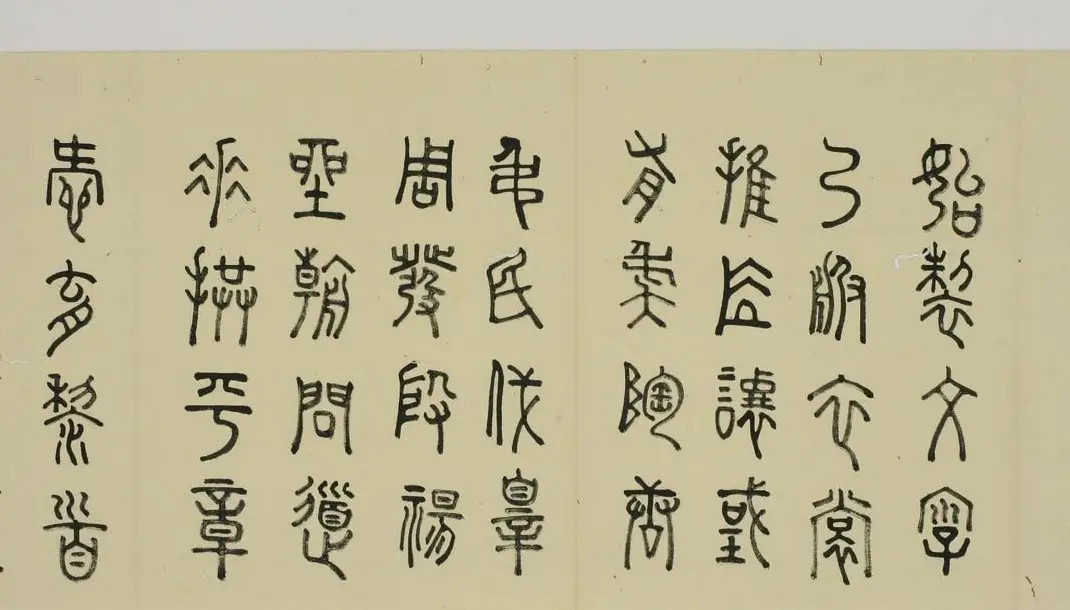 始製文字
乃服衣裳
推位讓國
有虞陶唐
弔民伐辠
周發殷湯
坐朝問道
垂拱平章
愛育黎首